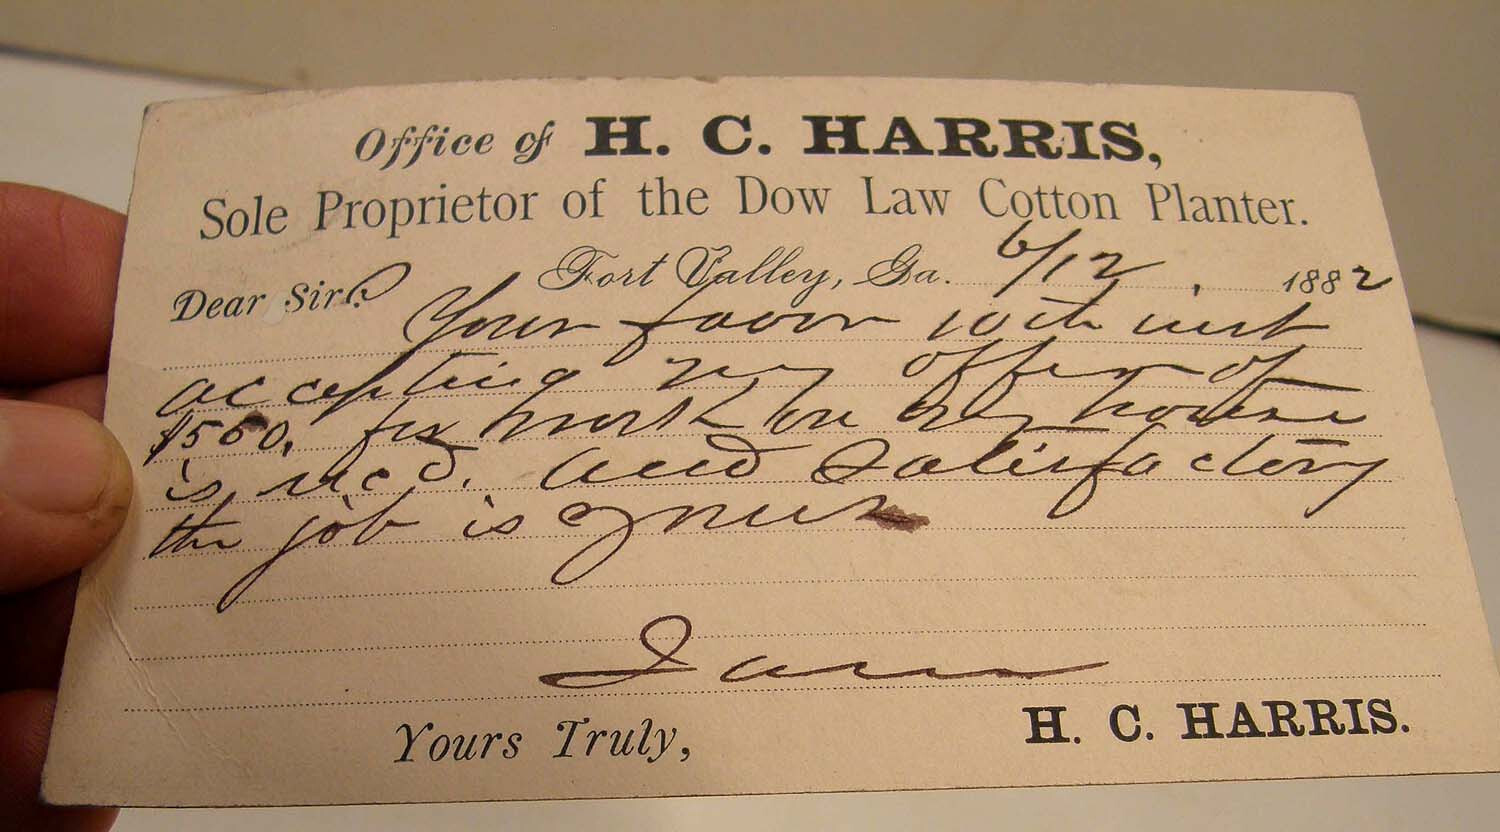 Office of H. C. HARRIS,
Sole Proprietor of the Dow Law Cotton Planter.
Fort Valley, Ga. 6/12, 1882
Dear Sir:
Your favor 10th inst
accepting my offer of
$550. for work on my house
is recd. and satisfactory
the job is yours
I am
Yours Truly,
H. C. HARRIS.